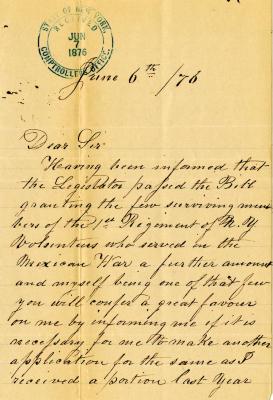 STATE OF NEW YORK,
RECEIVED
JUN
7
1876
COMPTROLLER'S OFFICE.
June 6th /76
Dear Sir
Having been informed that
the Legislator passed the Bill
granting the few surviving mem
bers of the 1st Regiment of N. Y
Volenteers who served in the
Mexican War a further amount
and myself being one of that few
you will confer a great favour
on me by informing me if it is
necessary for me to make another
application for the same as I
received a portion last Year